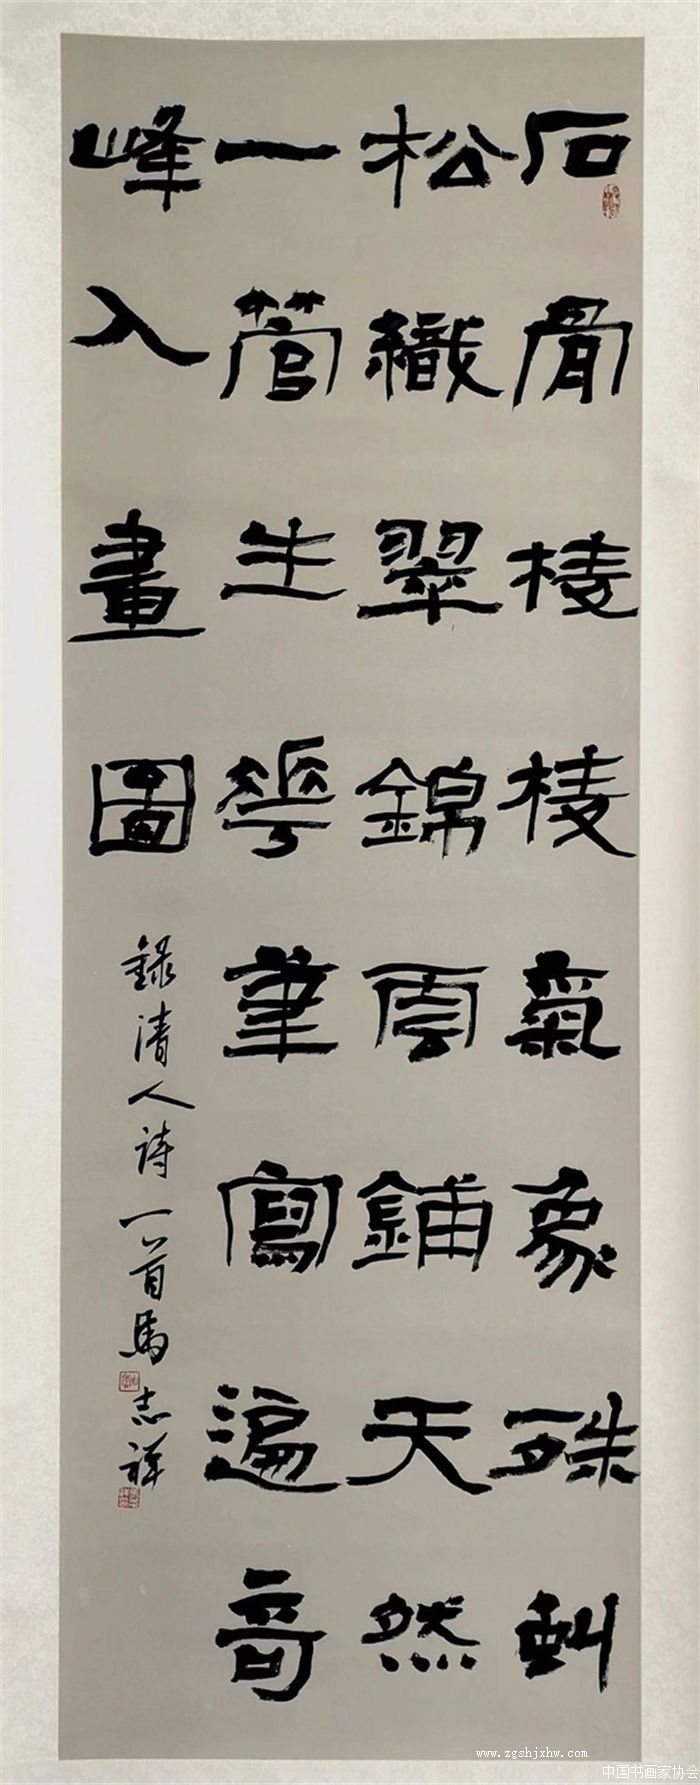 石骨棱棱氣象殊虯
松織翠錦雲鋪天然
一管生花筆寫遍奇
峰入畫圖
録清人詩一首馬志祥
www.zgshjxhw.com
中国书画家协会